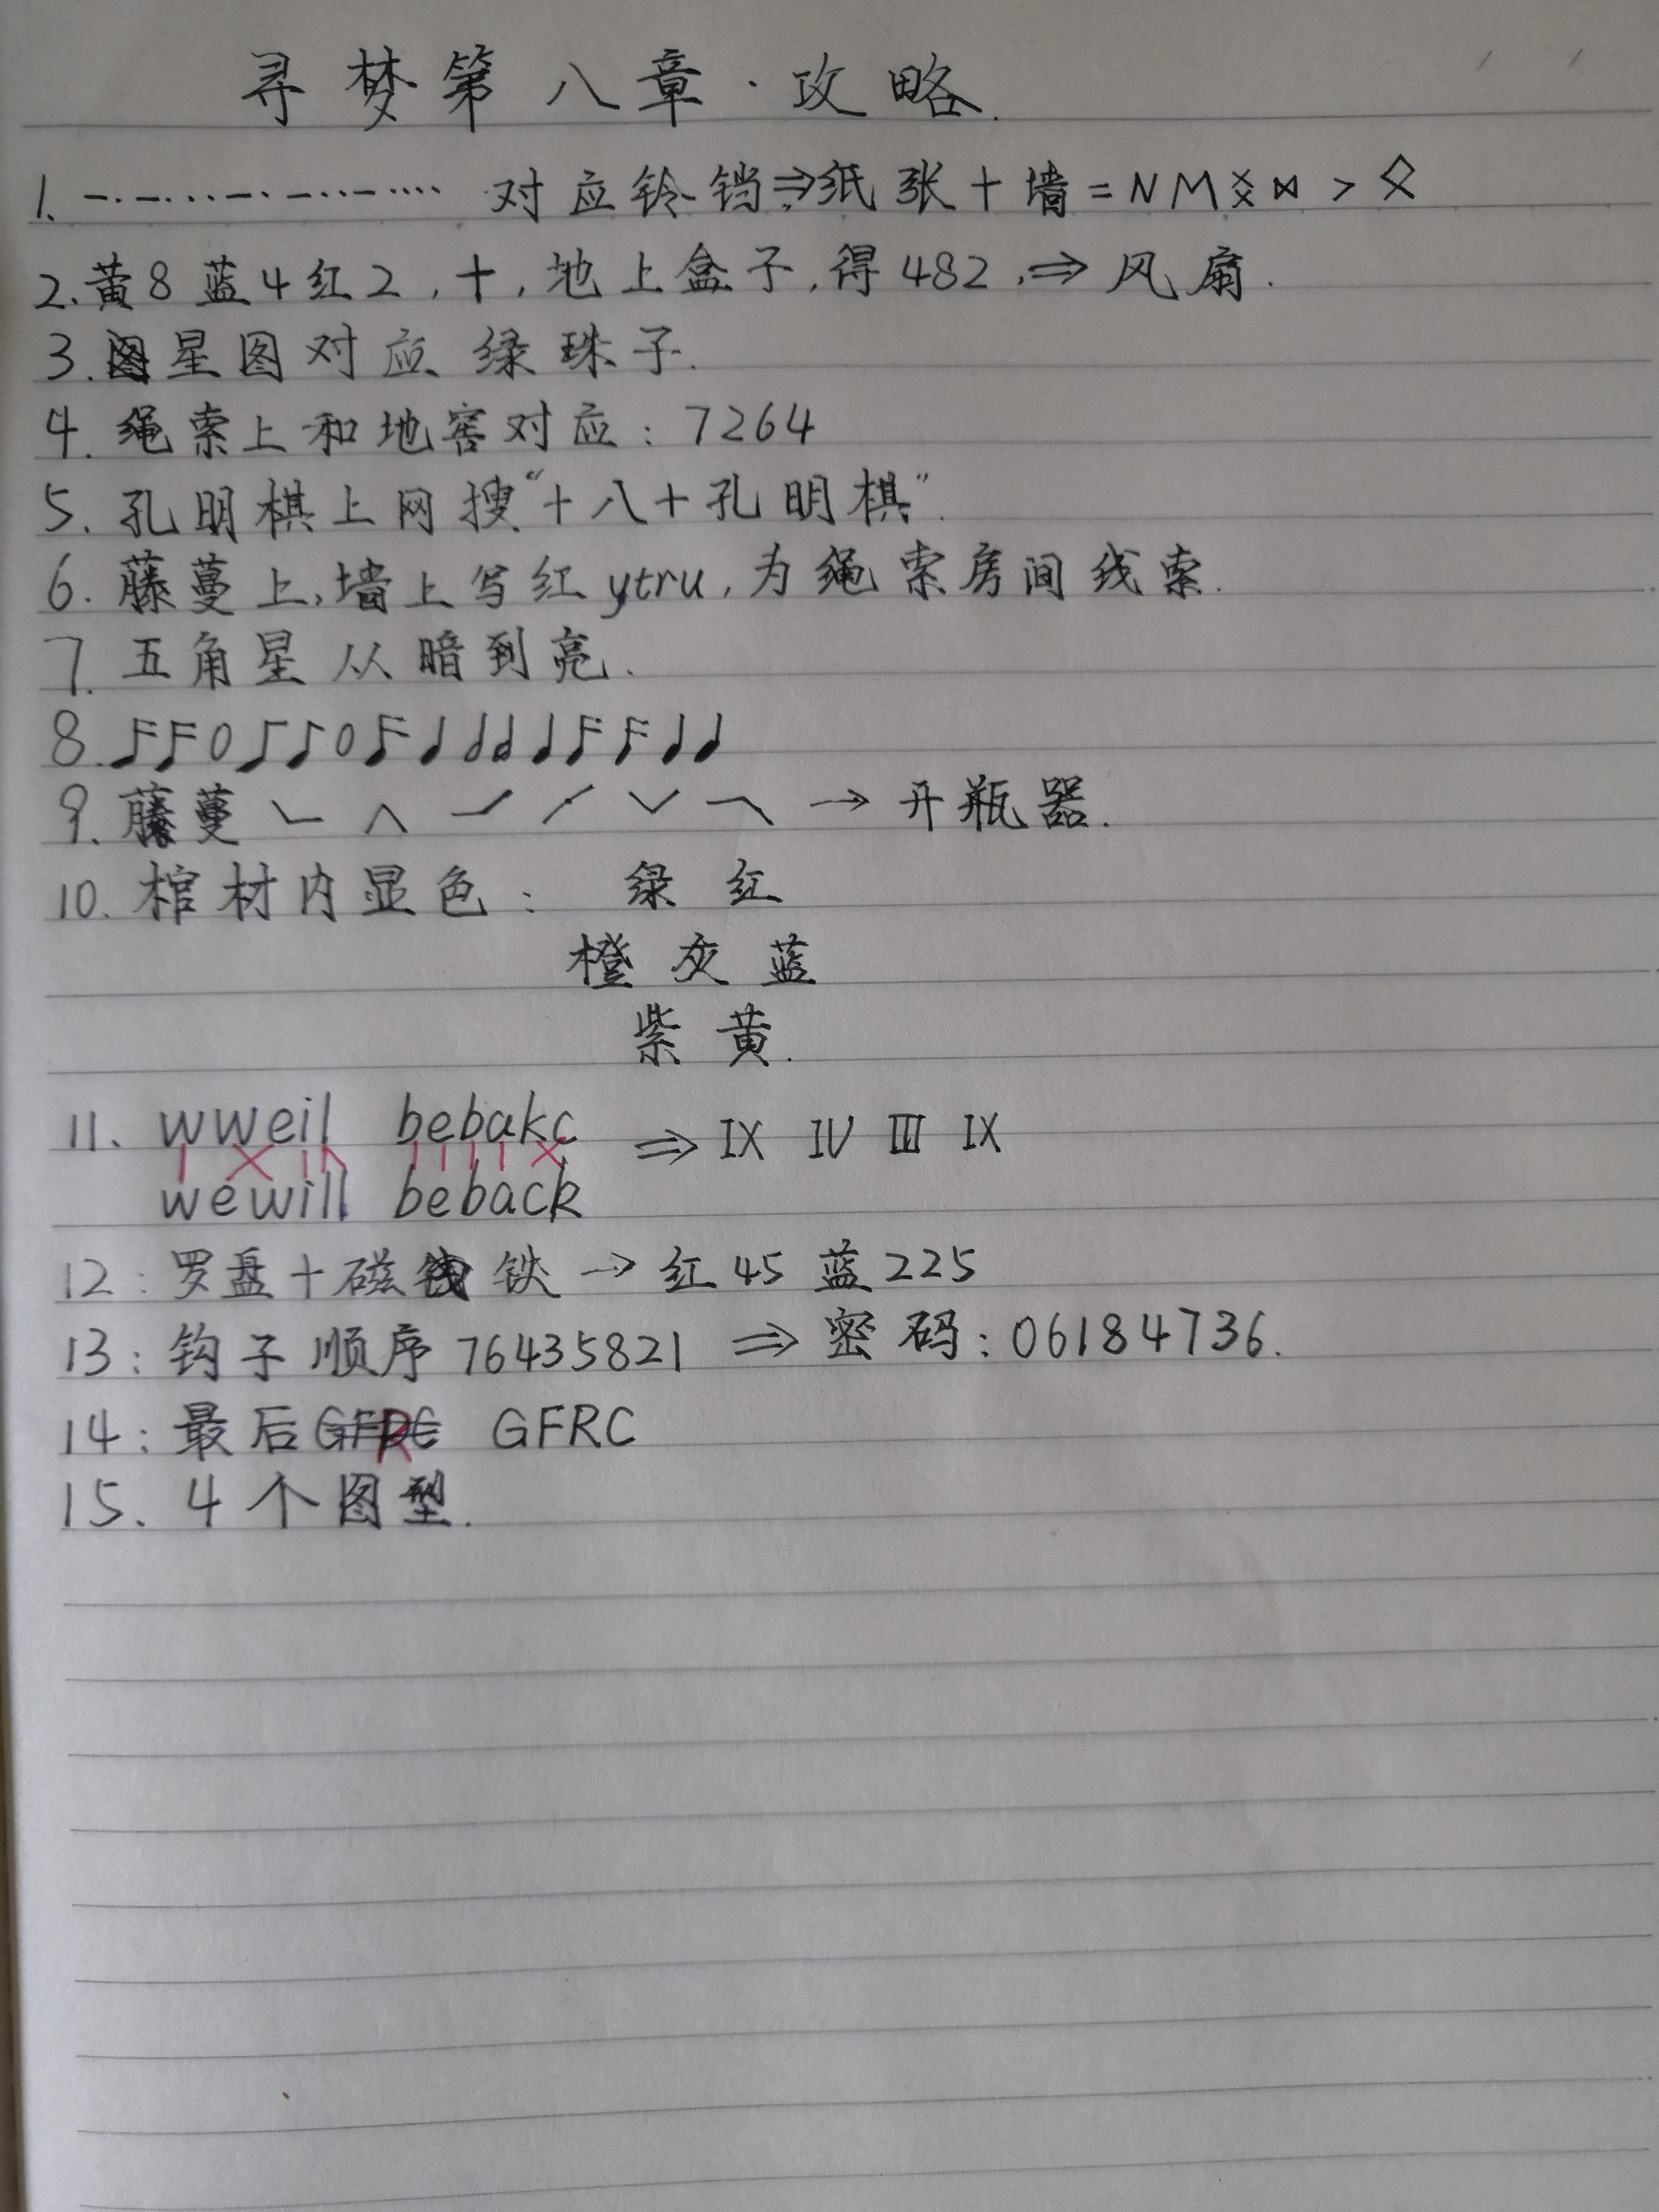 寻梦第八章·攻略.
1. —·—···—·—··—···· 对应铃铛⇒纸张+墙=NM ⋈ > ᛟ
2.黄8蓝4红2,十,地上盒子,得482,⇒风扇.
3.星图对应绿珠子.
4.绳索上和地窖对应:7264
5.孔明棋上网搜“十八十孔明棋”.
6.藤蔓上,墙上写红ytru,为绳索房间线索.
7.五角星从暗到亮.
8.
9.藤蔓 → 开瓶器.
10.棺材内显色: 绿 红
橙 灰 蓝
紫 黄.
11、wweil bebakc ⇒ IX IV III IX
wewill beback
12:罗盘+磁铁→红45蓝225
13:钩子顺序76435821 ⇒ 密码:06184736.
14:最后 GFRC
15、4个图型.